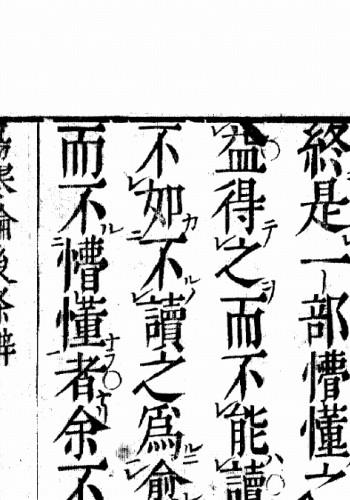 終是一部懵懂之
益得之而不能讀
不如不讀之為愈
而不懵懂者余不
傷寒論後條辨